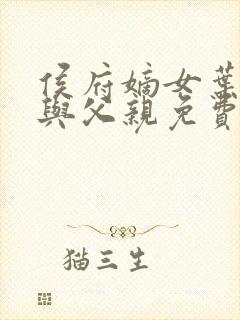 侯府嫡女葉
與父親免費
猫三生